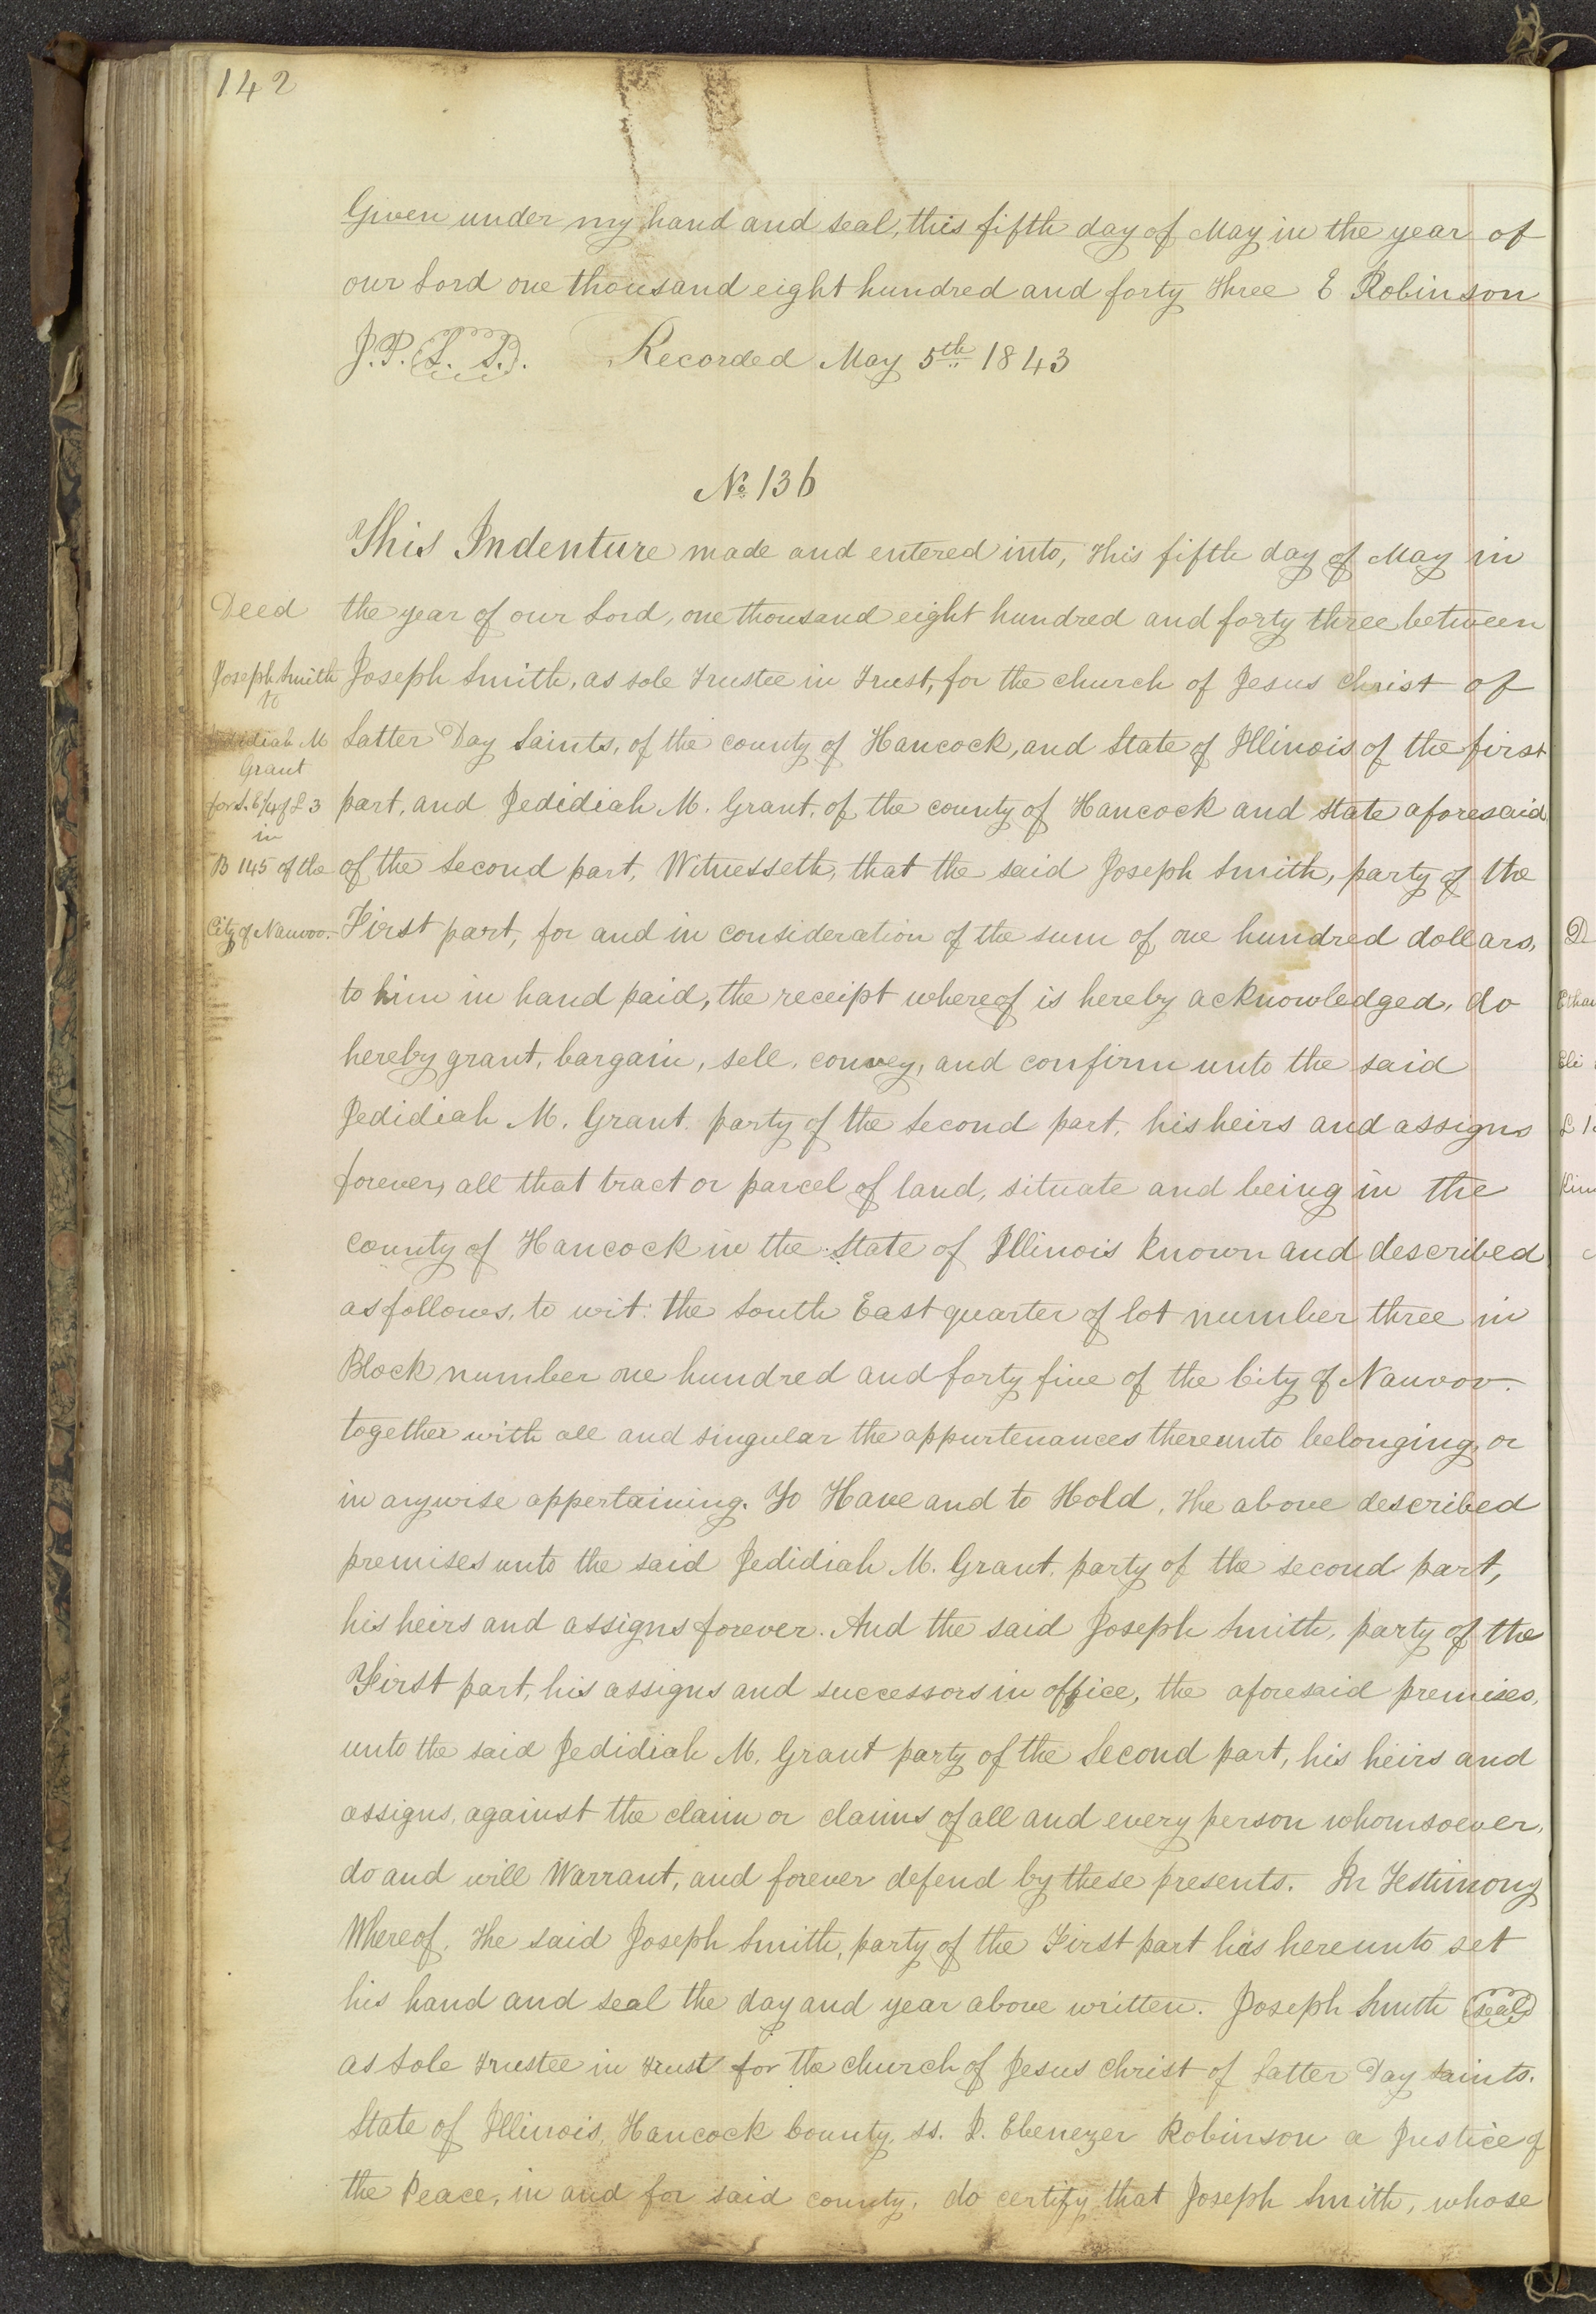 142
Given under my hand and seal, this fifth day of May in the year of
our Lord one thousand eight hundred and forty three E Robinson
J.P. (L. S.). Recorded May 5th 1843
No. 136
This Indenture made and entered into, this fifth day of May in
Deed
the year of our Lord, one thousand eight hundred and forty three between
Joseph Smith
to
Joseph Smith, as sole trustee in trust, for the church of Jesus Christ of
Jedidiah M
Grant
Latter Day Saints, of the county of Hancock, and State of Illinois of the first
for S. E 1/4 of L 3
in
part, and Jedidiah M. Grant, of the county of Hancock and state aforesaid
B 145 of the
of the Second part, Witnesseth, that the said Joseph Smith, party of the
City of Nauvoo.
First part, for and in consideration of the sum of one hundred dollars,
to him in hand paid, the receipt whereof is hereby acknowledged, do
hereby grant, bargain, sell, convey, and confirm unto the said
Jedidiah M. Grant. party of the Second part, his heirs and assigns
forever, all that tract or parcel of land, situate and being in the
County of Hancock in the State of Illinois known and described
as follows, to wit: the South East quarter of lot number three in
Block number one hundred and forty five of the City of Nauvoo.
together with all and singular the appurtenances thereunto belonging, or
in anywise appertaining. To Have and to Hold, the above described
premises unto the said Jedidiah M. Grant, party of the second part,
his heirs and assigns forever. And the said Joseph Smith, party of the
First part, his assigns and successors in office, the aforesaid premises,
unto the said Jedidiah M. Grant party of the Second part, his heirs and
assigns, against the claim or claims of all and every person whomsoever,
do and will Warrant, and forever defend by these presents. In Testimony
Whereof, the said Joseph Smith, party of the First part has hereunto set
his hand and seal the day and year above written. Joseph Smith (seal)
as Sole trustee in trust for the church of Jesus Christ of Latter Day saints.
State of Illinois, Hancock County, ss. I. Ebenezer Robinson a Justice of
the Peace, in and for said county, do certify that Joseph Smith, whose